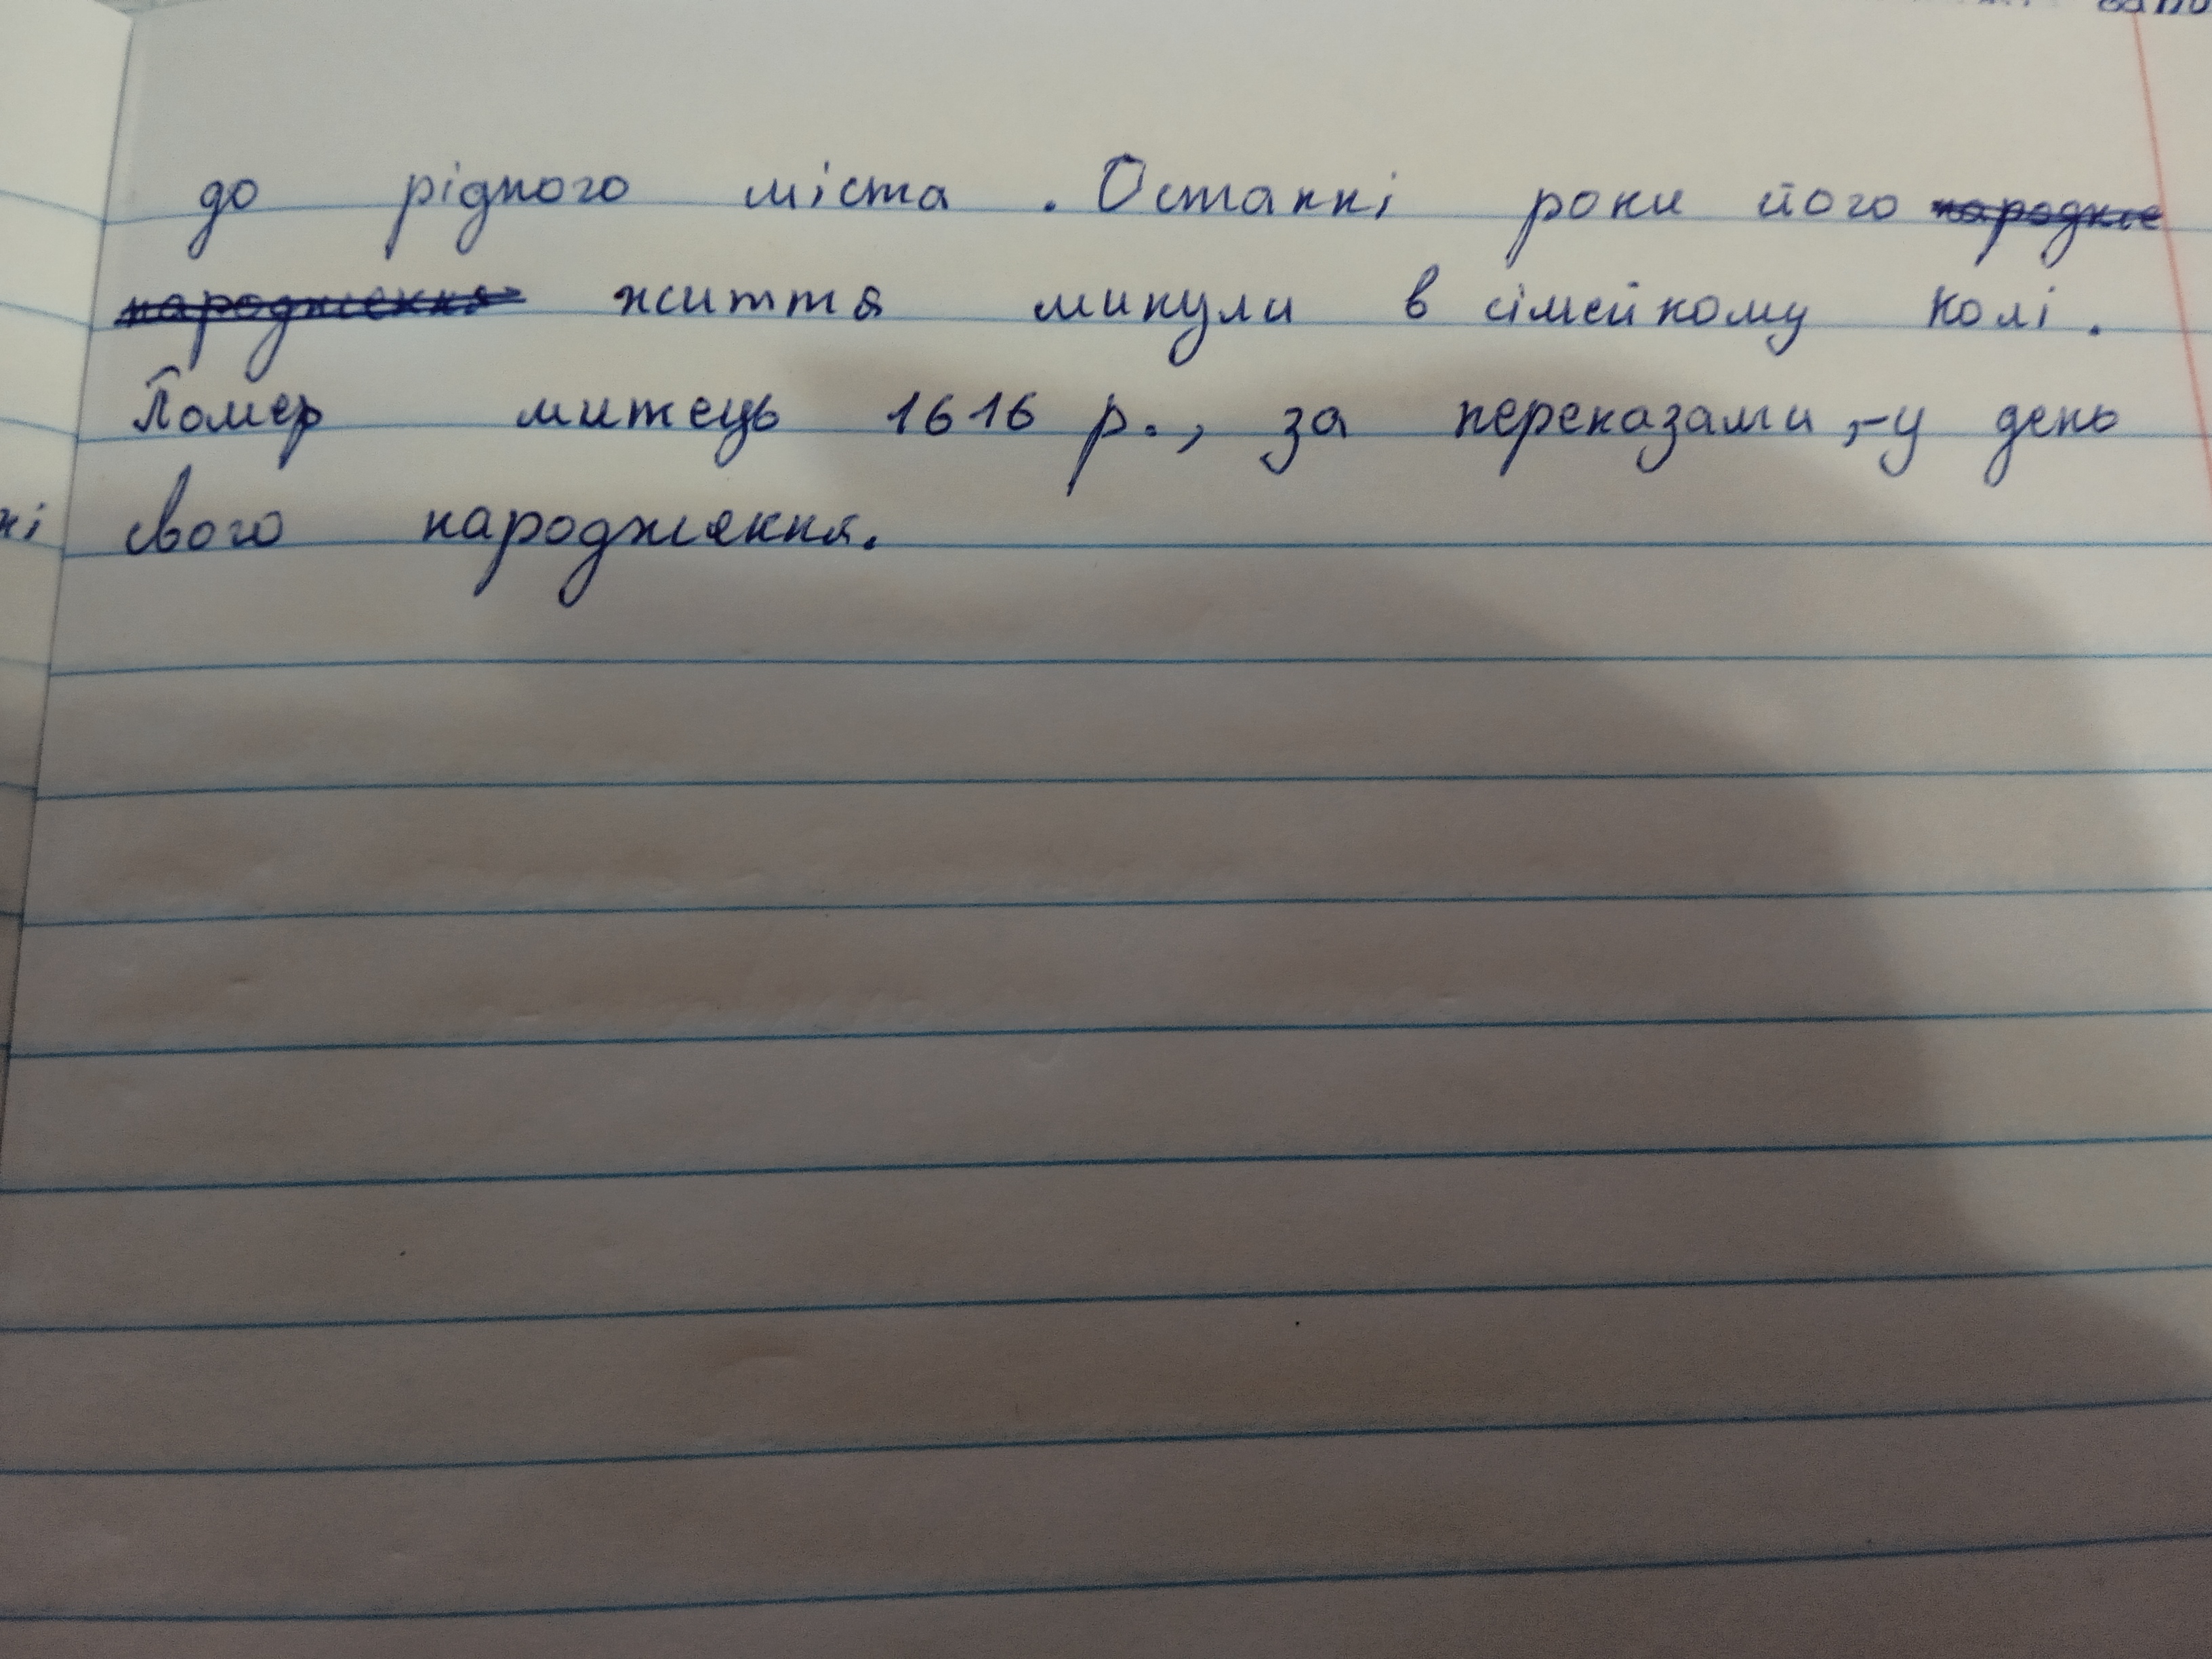 до рідного міста. Останні роки його ~~народже~~
~~народження~~ життя минули в сімейному колі.
Помер митець 1616 р., за переказами,-у день
свого народження.